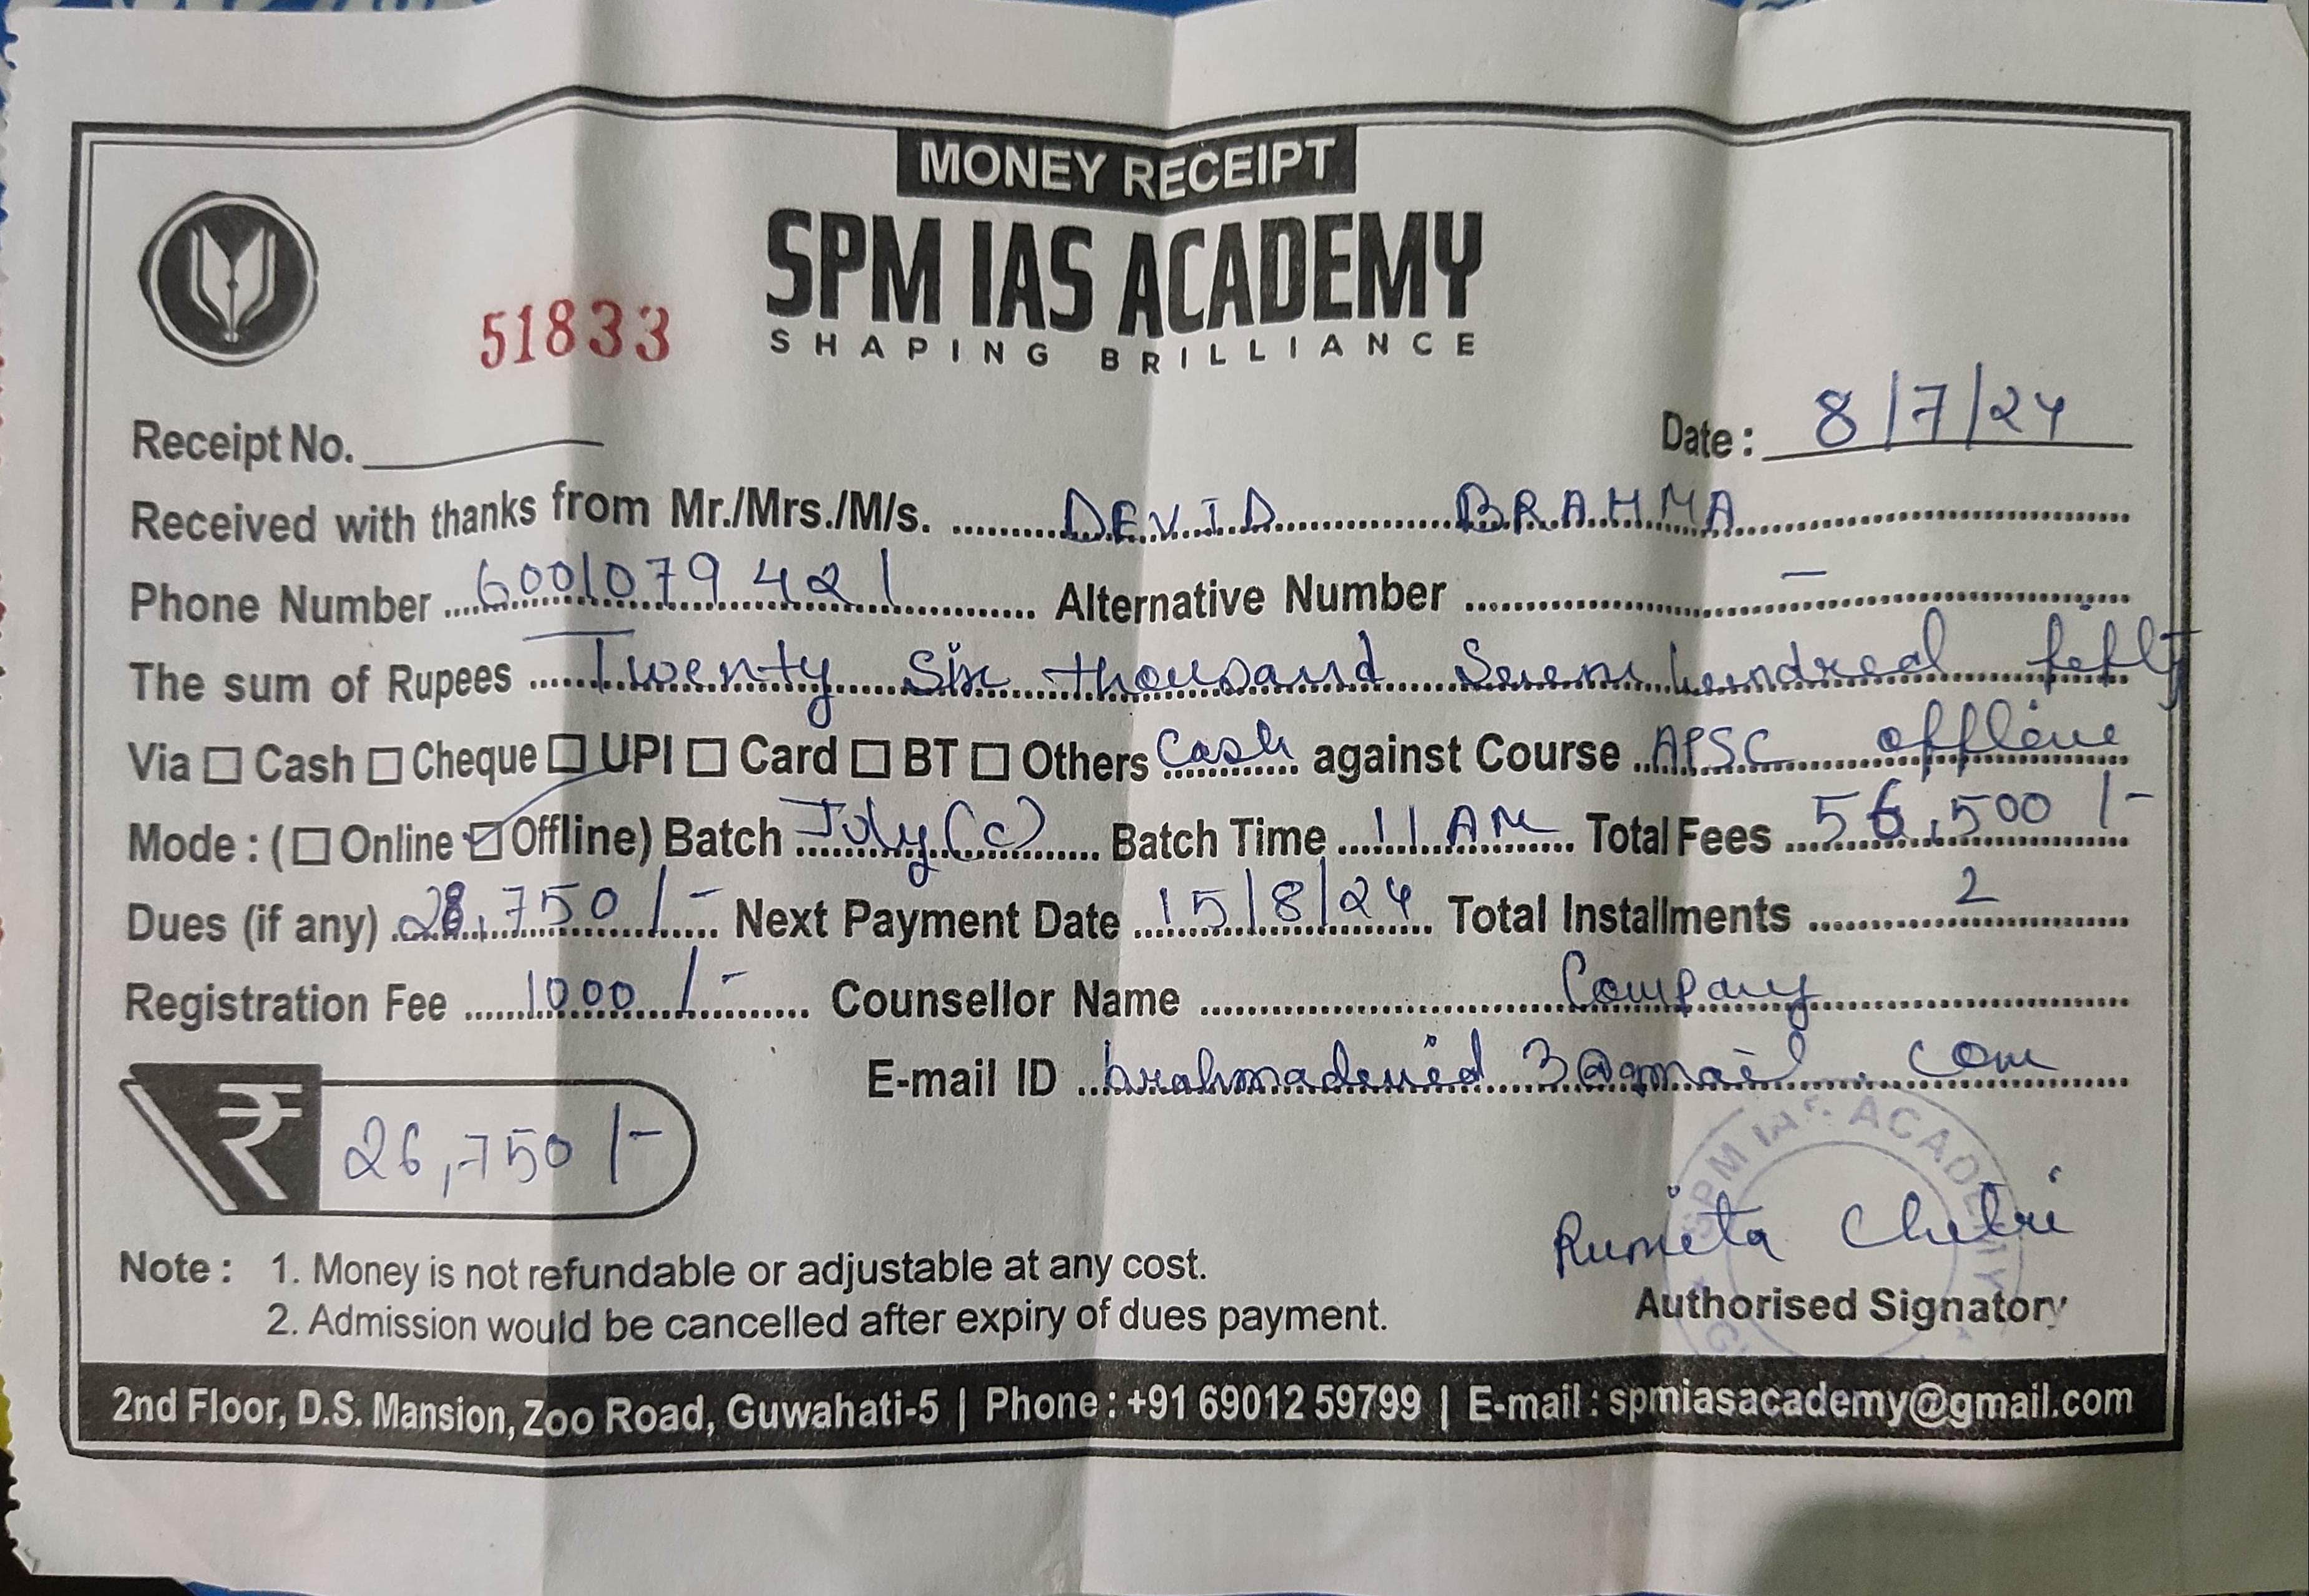 MONEY RECEIPT
SPM IAS ACADEMY
SHAPING BRILLIANCE
51833
Receipt No. Date : 8/7/24
Received with thanks from Mr./Mrs./M/s. DEVID BRAHMA
Phone Number 6001079421 Alternative Number –
The sum of Rupees Twenty Six thousand Seven hundred fifty
Via Cash Cheque UPI Card BT Others Cash against Course APSC offline
Mode : ( Online Offline) Batch July (C) Batch Time 11 AM Total Fees 56,500/-
Dues (if any) 28,750/- Next Payment Date 15/8/24 Total Installments 2
Registration Fee 1000/- Counsellor Name Company
E-mail ID brahmadevid3@gmail.com
₹ 26,750/-
SPM IAS ACADEMY
Rumita Chetri
Note : 1. Money is not refundable or adjustable at any cost.
2. Admission would be cancelled after expiry of dues payment.
Authorised Signatory
2nd Floor, D.S. Mansion, Zoo Road, Guwahati-5 | Phone : +91 69012 59799 | E-mail : spmiasacademy@gmail.com